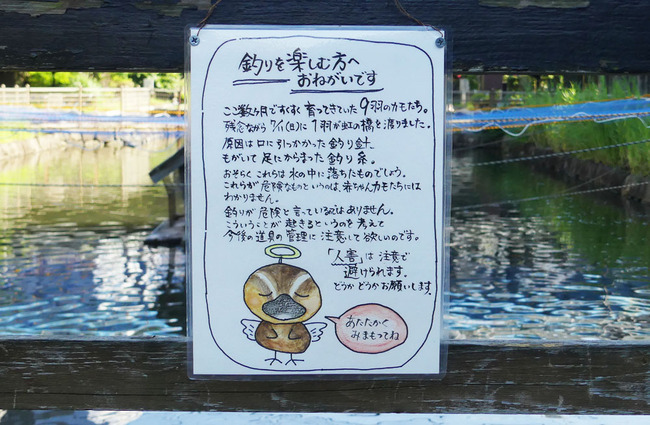 釣りを楽しむ方へ
おねがいです
ここ数ヶ月ですくすく育ってきていた9羽のカモたち。
残念ながら7/11(日)に1羽が虹の橋を渡りました。
原因は口に引っかかった釣り針、
もがいて足にからまった釣り糸。
おそらくこれらは水の中に落ちたものでしょう。
これらが危険なものというのは、赤ちゃんカモたちには
わかりません。
釣りが危険と言っているのではありません。
こういうことが起きるというのを考えて
今後の道具の管理に注意して欲しいのです。
「人害」は注意で
避けられます。
どうかどうかお願いします。
あたたかく
みまもってね